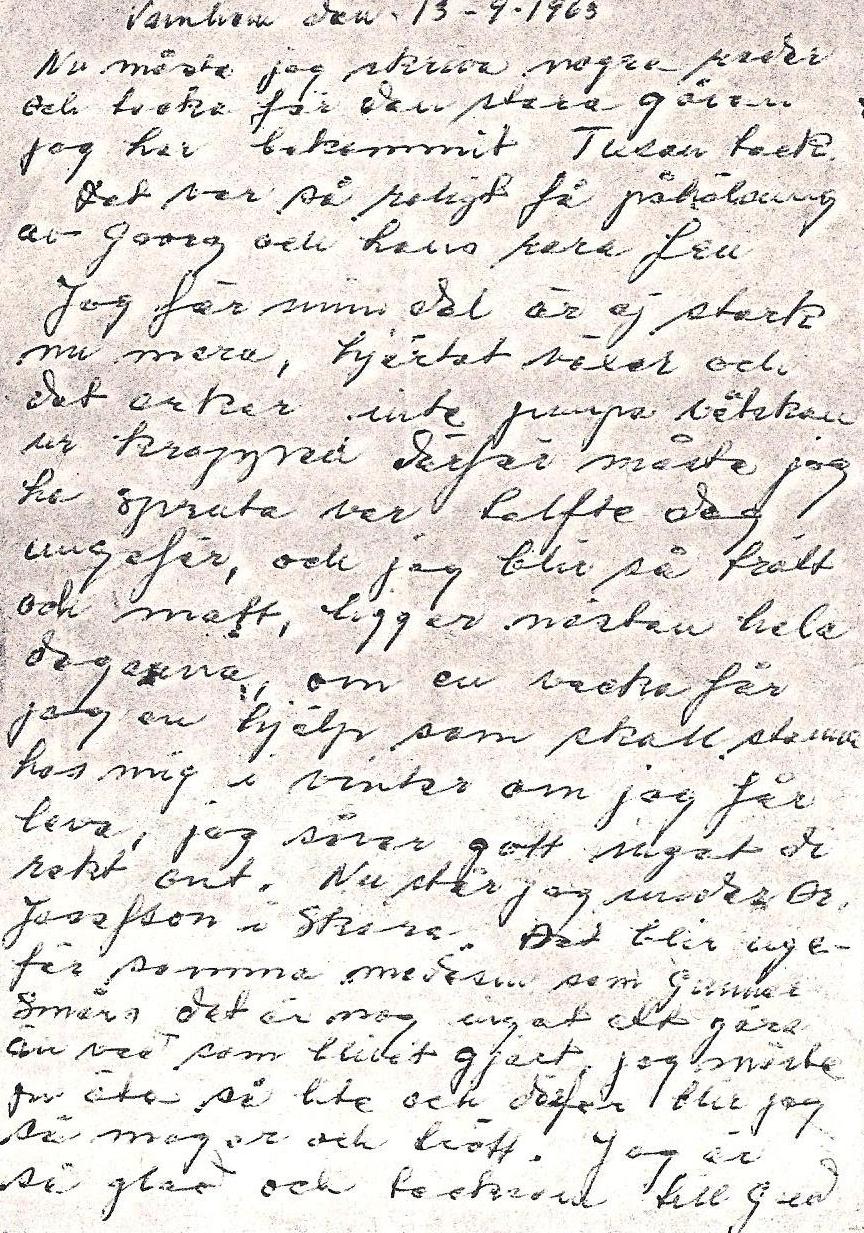 den 13-9-1963
Nu måste jag skriva några rader
och tacka för den stora gåvan
jag har bekommit Tusen tack.
Det var så roligt få påhälsning
av Georg och hans rara fru
Jag för min del är ej stark
nu mera, hjärtat växer och
det orkar inte pumpa vätskan
ur kroppen därför måste jag
ha spruta var tolfte dag
ungefär, och jag blir så trött
och matt, ligger nästan hela
dagarna, om en vecka får
jag en hjälp som skall stanna
hos mig i vinter om jag får
leva, jag sover gott inget di
rekt ont. Nu står jag under Dr.
Josefson i Skara. Det blir unge-
fär samma medesin som Gunnar
det är nog inget alt göra
än vad som blivit gjort, jag måste
ju äta så lite och därför blir jag
så mager och trött. Jag är
så glad och tacksam till Gud